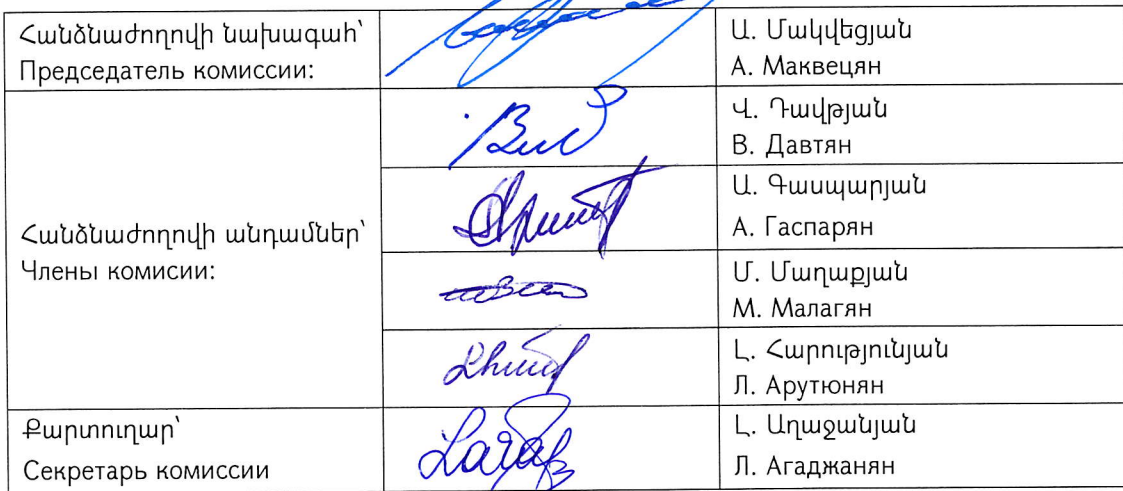 Հանձնաժողովի նախագահ՝
Председатель комиссии:
Ա. Մակվեցյան
А. Маквецян
Հանձնաժողովի անդամներ՝
Члены комисии:
Վ. Դավթյան
В. Давтян
Ա. Գասպարյան
А. Гаспарян
Մ. Մաղաքյան
М. Малагян
Լ. Հարությունյան
Л. Арутюнян
Քարտուղար՝
Секретарь комиссии
Լ. Աղաջանյան
Л. Агаджанян